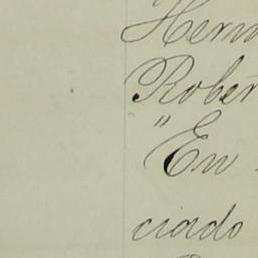 Hern
Rober
"En
ciado